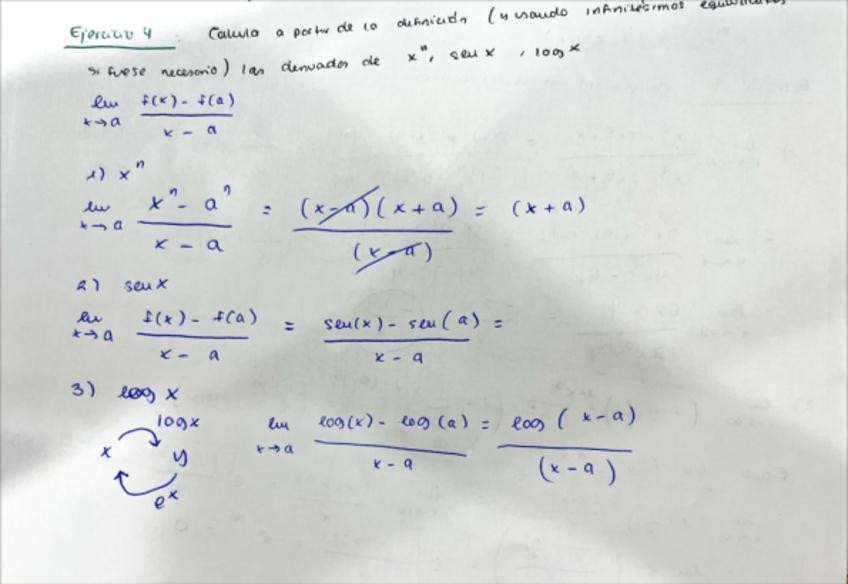 Ejercicio 4 Calcula a partir de la definición (y usando infinitésimos
si fuese necesario) las derivadas de xⁿ, sen x, log x
lim x→a f(x) - f(a) / x - a
1) xⁿ
lim x→a xⁿ - aⁿ / x - a = (x-a)(x+a) / (x-a) = (x+a)
2) sen x
lim x→a f(x) - f(a) / x - a = sen(x) - sen(a) / x - a =
3) log x
log x
x y
eˣ
lim x→a log(x) - log(a) / x - a = log(x-a) / (x-a)